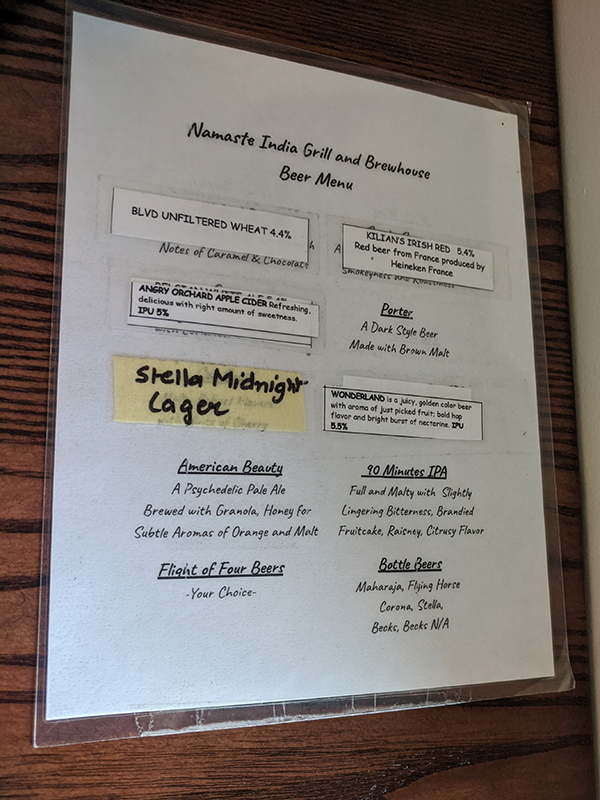 Namaste India Grill and Brewhouse
Beer Menu
BLVD UNFILTERED WHEAT 4.4%
Notes of Caramel & Chocolate
KILIAN'S IRISH RED 5.4%
Red beer from France produced by
Heineken France
Smokeyness and Roastiness
ANGRY ORCHARD APPLE CIDER Refreshing,
delicious with right amount of sweetness.
IPU 5%
Porter
A Dark Style Beer
Made with Brown Malt
Stella Midnight
Lager
WONDERLAND is a juicy, golden color beer
with aroma of just picked fruit; bold hop
flavor and bright burst of nectarine. IPU
5.5%
American Beauty
A Psychedelic Pale Ale
Brewed with Granola, Honey for
Subtle Aromas of Orange and Malt
90 Minutes IPA
Full and Malty with Slightly
Lingering Bitterness, Brandied
Fruitcake, Raisney, Citrusy Flavor
Flight of Four Beers
-Your Choice-
Bottle Beers
Maharaja, Flying Horse
Corona, Stella,
Becks, Becks N/A